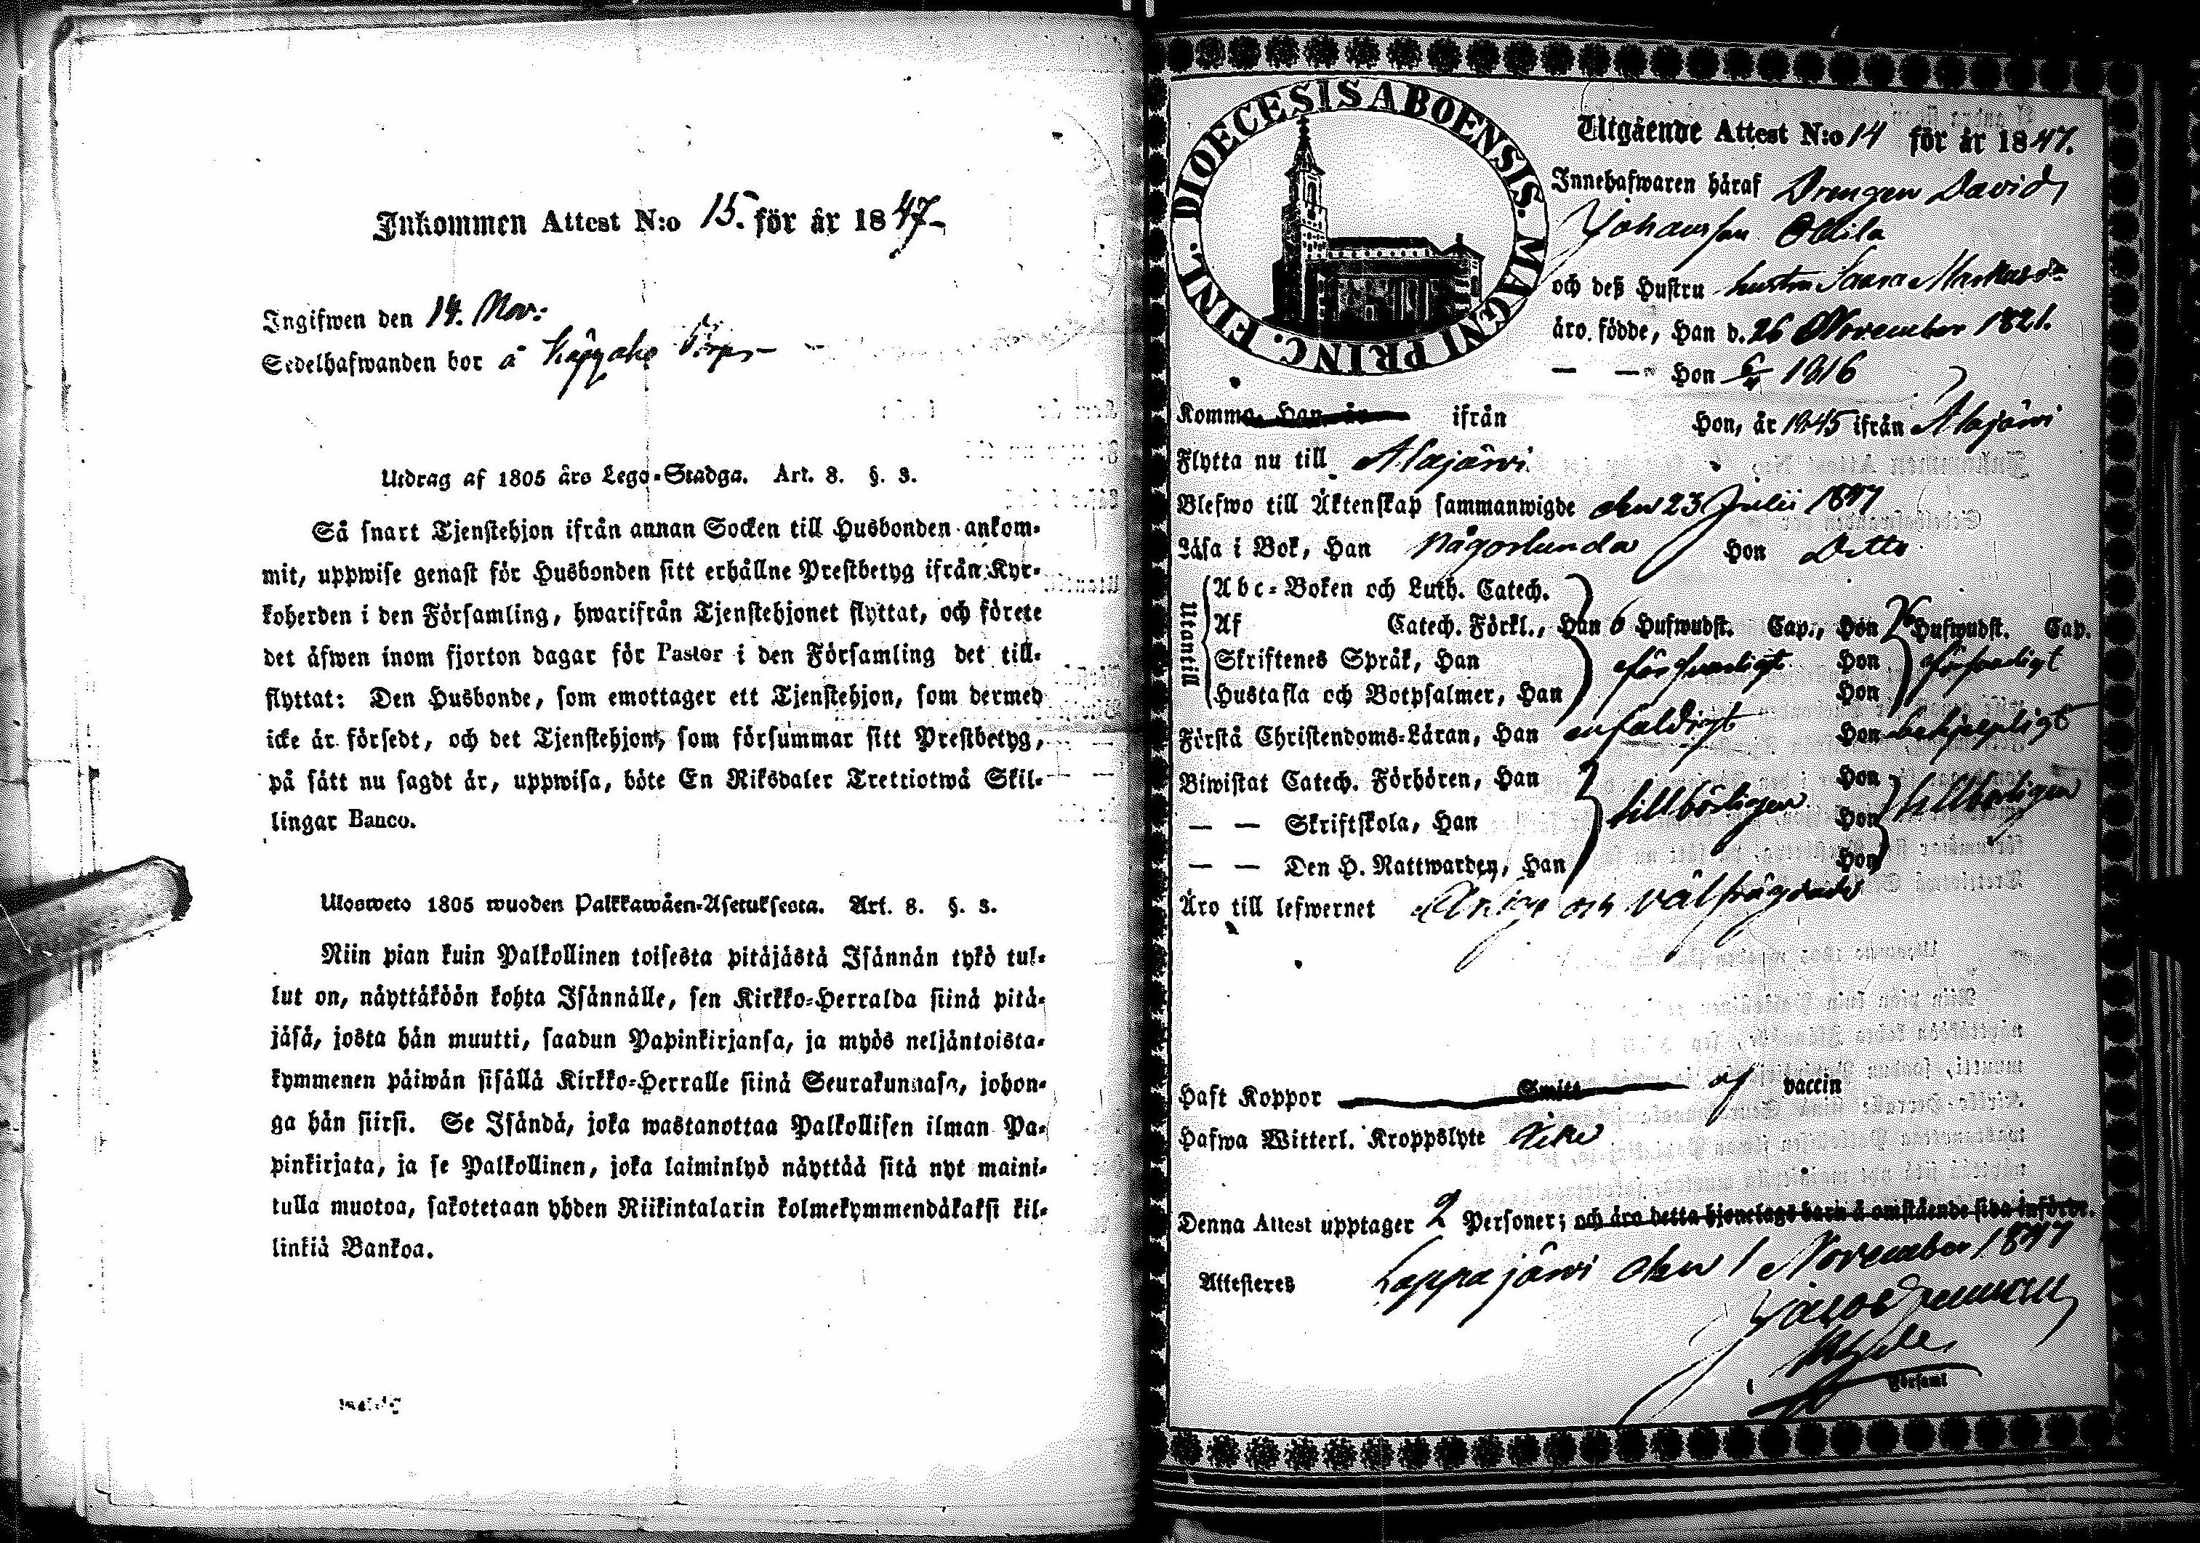 Inkommen Attest N:o 15. för år 1847
Ingifwen den 14. Nov:
Sedelhafwanden bor å
Utdrag af 1805 års Lego-Stadga. Art. 8. §. 3.
Så snart Tjenstehjon ifrån annan Socken till Husbonden ankom-
mit, uppwise genast för Husbonden sitt erhållne Prestbetyg ifrån Kyr-
koherden i den Församling, hwarifrån Tjenstehjonet flyttat, och förete
det äfwen inom fjorton dagar för Pastor i den Församling det till-
flyttat: Den Husbonde, som emottager ett Tjenstehjon, som dermed
icke är försedt, och det Tjenstehjon, som försummar sitt Prestbetyg,
på sätt nu sagdt är, uppwisa, böte En Riksdaler Trettiotwå Skil-
lingar Banco.
Ulosweto 1805 wuoden Palkkawäen-Asetuksesta. Art. 8. §. 3.
Niin pian kuin Palkollinen toisesta pitäjästä Isännän tykö tul-
lut on, näyttäköön kohta Isännälle, sen Kirkko-Herralda siinä pitä-
jäsä, josta hän muutti, saadun Papinkirjansa, ja myös neljäntoista-
kymmenen päiwän sisällä Kirkko-Herralle siinä Seurakunnasa, johon-
ga hän siirsi. Se Isändä, joka wastanottaa Palkollisen ilman Pa-
pinkirjata, ja se Palkollinen, joka laiminlyö näyttää sitä nyt maini-
tulla muotoa, sakotetaan yhden Riikintalarin kolmekymmendäkaksi kil-
linkiä Bankoa.
DIOECESIS ABOENSIS. MAGNI PRINC. FINL.
Utgående Attest N:o 14 för år 1847.
Innehafwaren häraf Drengen David
Johansson
och deß Hustru hustru Saara Markusdr
äro födde, Han d. 26 November 1821.
— — Hon 1816
Komma, Han år ifrån Hon, år 1845 ifrån Alajärvi
Flytta nu till Alajärvi
Blefwo till Äktenskap sammanwigde den 23 Julii 1847
Läsa i Bok, Han någorlunda Hon Ditto
Utantill
Abc-Boken och Luth. Catech.
Af Catech. Förkl., Han 6 Hufwudst. Cap., Hon Hufwudst. Cap.
Skriftenes Språk, Han försvarligt Hon försvarligt
Hustafla och Botpsalmer, Han Hon
Förstå Christendoms-Läran, Han enfaldigt Hon behjelpligt
Biwistat Catech. Förhören, Han Hon
— — Skriftskola, Han tillbörligen Hon tillbörligen
— — Den H. Nattwarden, Han Hon
Äro till lefwernet ärlige och välfrägdade
Haft Koppor Smitt af vaccin
Hafwa Witterl. Kroppslyte Icke
Denna Attest upptager 2 Personer; och äro detta hjonelags barn å omstående sida införde.
Attesteres Lappajärvi den 1 November 1847
Församl